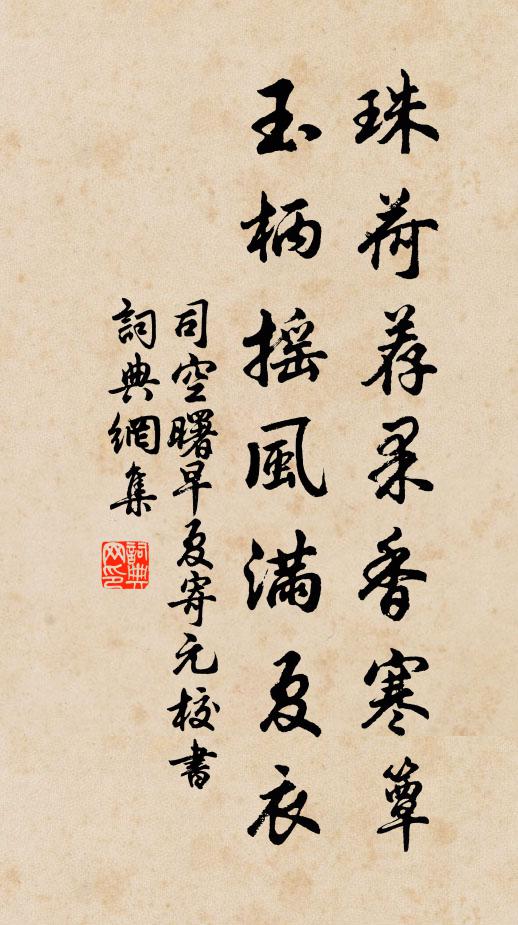 珠荷荐果香寒簟
玉柄摇風満夏衣
司空曙早夏寄元校書
詞典網集
詞典网印